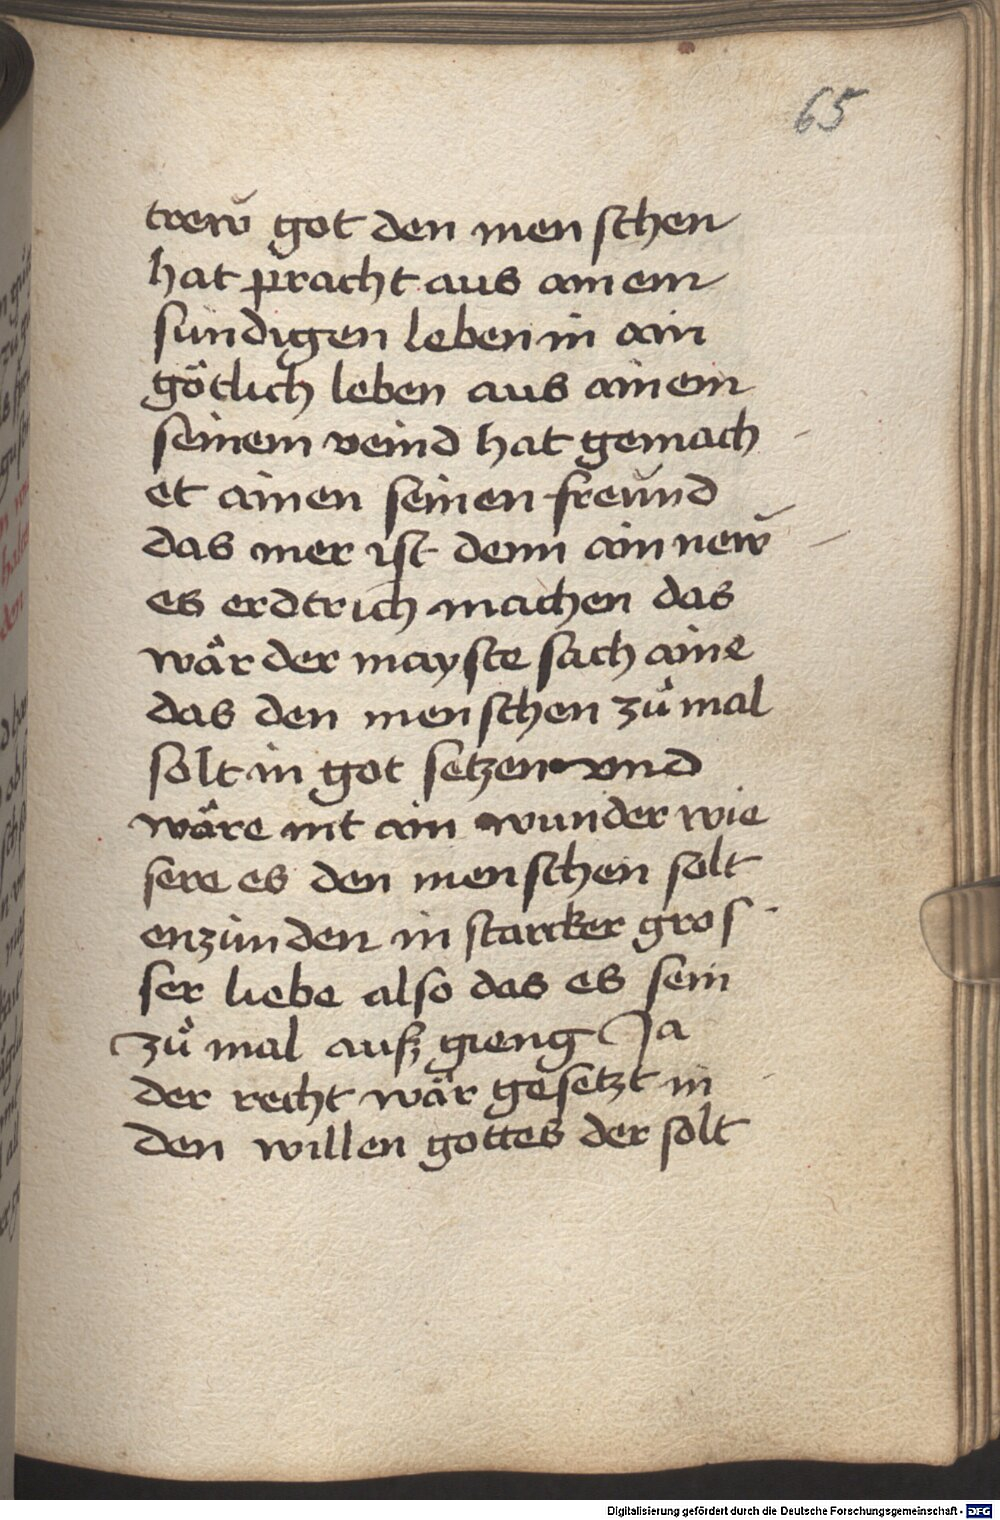 65
trew̆ got den menschen
hat pracht aus ainem
sundigen leben in ain
götlich leben aus ainem
seinem veind hat gemach -
et ainen seinen freŭnd
das mer ist denn ain new̆ -
es erdtrich machen das
wär der mayste sach aine
das den menschen zů mal
solt in got setzen vnd
wäre nit ain wunder wie
sere es den menschen solt
enzünden in starcker gros -
ser liebe also das es sein
zů mal auß gieng Ja
der recht wär gesetzt in
den willen gottes der solt
Digitalisierung gefördert durch die Deutsche Forschungsgemeinschaft - DFG